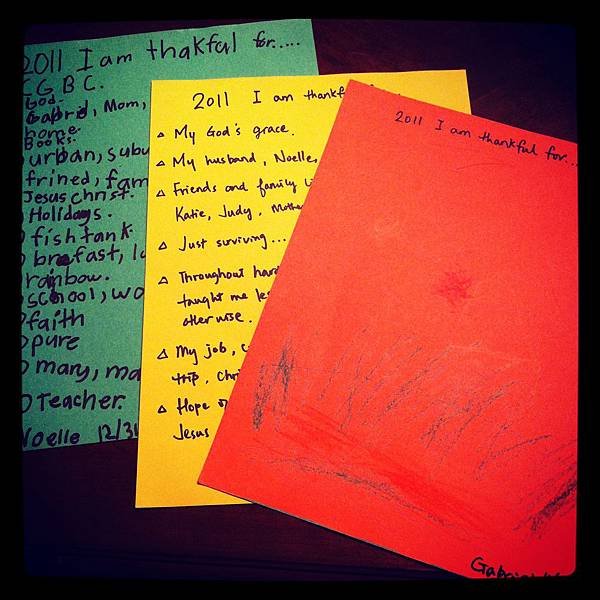 2011 I am thakful for.....
CGBC.
God.
Gabriel, Mom,
home.
Books.
urban, subu
frined, fam
Jesus christ.
Holidays.
fish tank.
brefast, lu
rainbow.
school, wo
faith
pure
mary, ma
Teacher.
Noelle 12/31
2011 I am thankful f
My God's grace.
My husband, Noelle,
Friends and family li
Katie, Judy, Mothe
Just surviving...
Throughout hard
taught me les
otherwise.
My job, c
trip, Chri
Hope o
Jesus
2011 I am thankful for...